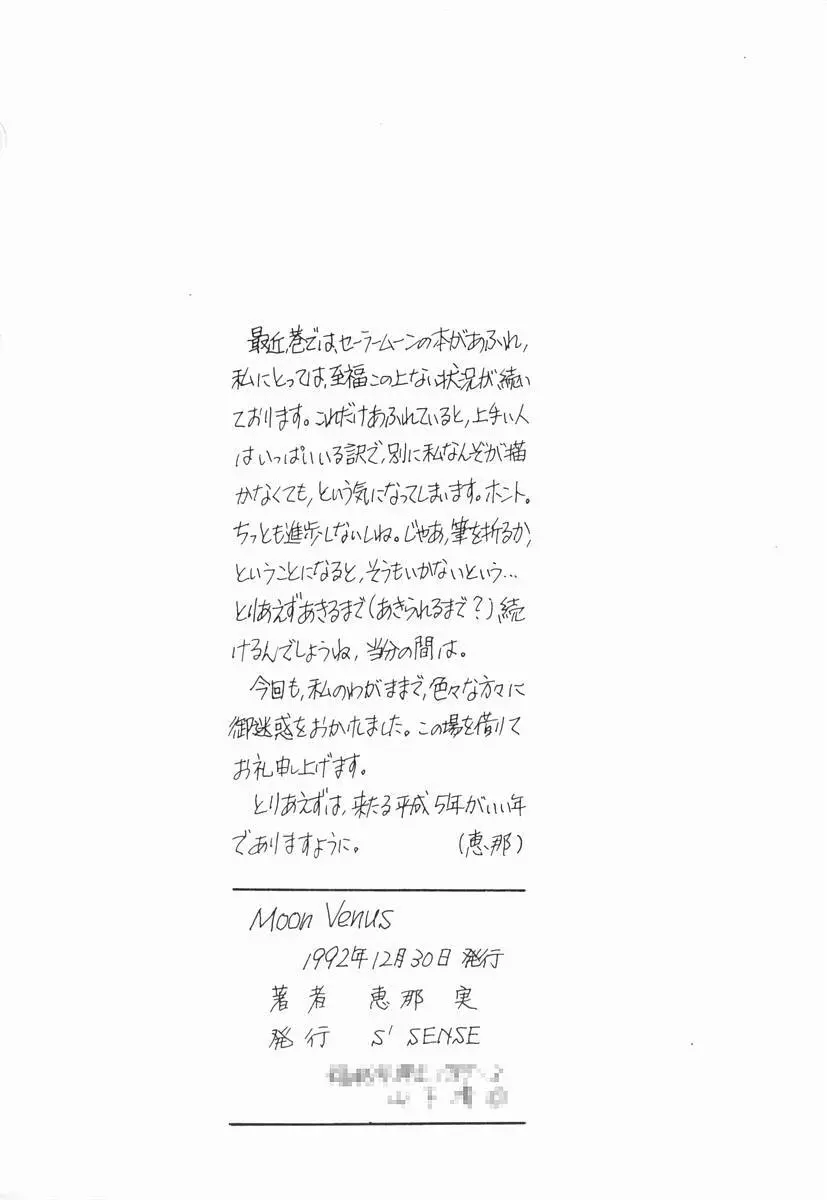 最近、巷では、セーラームーンの本があふれ、
私にとっては、至福この上ない状況が続い
ております。これだけあふれていると、上手い人
はいっぱいいる訳で、別に私なんぞが描
かなくても、という気になってしまいます。ホント。
ちっとも進歩しないしね。じゃあ、筆を折るか、
ということになると、そうもいかないという…
とりあえずあきるまで(あきられるまで?)続
けるんでしょうね、当分の間は。
今回も、私のわがままで、色々な方々に
御迷惑をおかけしました。この場を借りて
お礼申し上げます。
とりあえずは、来たる平成5年がいい年
でありますように。 (恵那)
Moon Venus
1992年12月30日 発行
著者 恵那 実
発行 S' SENSE